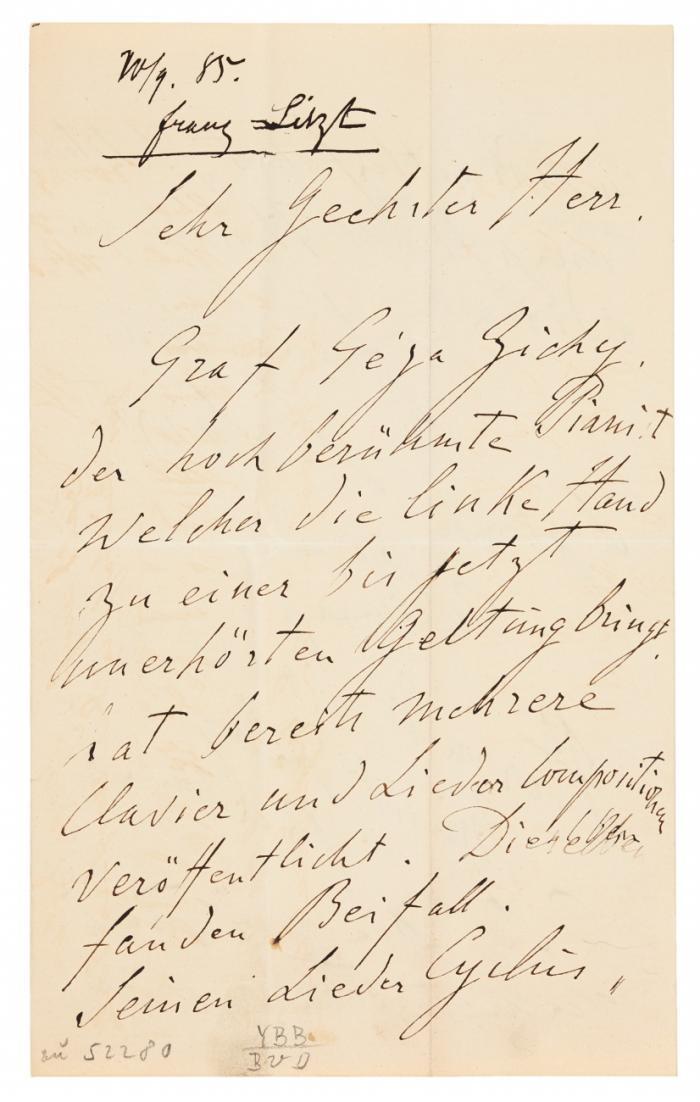 10/9. 85.
Franz Liszt
Sehr Geehrter Herr,
Graf Géza Zichy,
der hochberühmte Pianist
welcher die linke Hand
zu einer bis jetzt
unerhörten Geltung bringt,
hat bereits mehrere
Clavier und Lieder Compositionen
veröffentlicht. Dieselben
fanden Beifall.
Seinen Lieder Cyclus „
52280
YBB
BVD